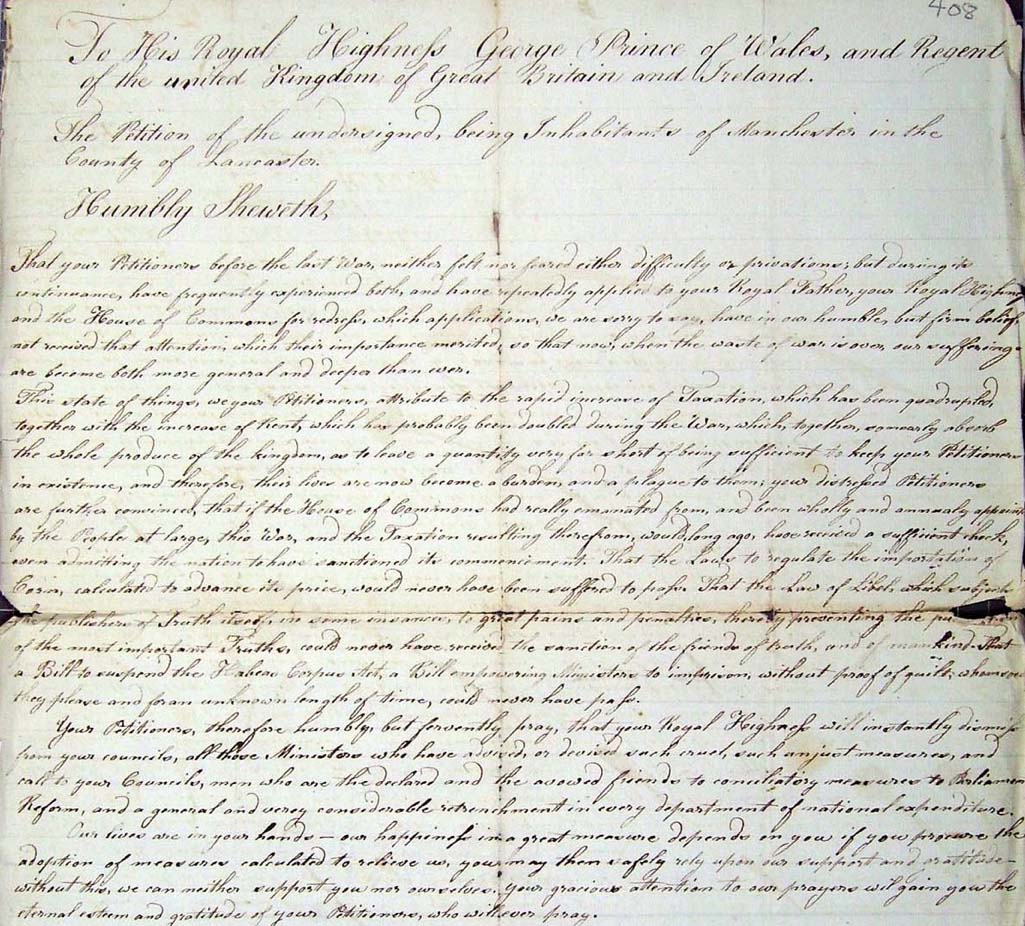 408
To His Royal Highness George Prince of Wales, and Regent
of the united Kingdom of Great Britain and Ireland.
The Petition of the undersigned, being Inhabitants of Manchester in the
County of Lancaster.
Humbly Sheweth,
That your Petitioners before the last War, neither felt nor feared either difficulty or privations; but during its
continuance, have frequently experienced both, and have repeatedly applied to your Royal Father, your Royal Highness
and the House of Commons for redress, which applications, we are sorry to say, have in our humble, but firm belief,
not received that attention, which their importance merited, so that now, when the waste of war is over, our sufferings
are become both more general and deeper than ever.
This state of things, we your Petitioners, attribute to the rapid increase of Taxation, which has been quadrupled,
together with the increase of Rent, which has probably been doubled during the War, which, together, so nearly absorb
the whole produce of the kingdom, as to leave a quantity very far short of being sufficient to keep your Petitioners
in existence, and therefore, their lives are now become a burden, and a plague to them; your distressed Petitioners
are further convinced, that if the House of Commons had really emanated from, and been wholly and annualy
by the People at large, this War, and the Taxation resulting therefrom, would, long ago, have received a sufficient check,
even admitting the nation to have sanctioned its commencement. That the Laws to regulate the importation of
Corn, calculated to advance its price, would never have been suffered to pass. That the Law of Libel, which subjects
the publishers of Truth itself, in some insances, to great pains and penalties, thereby preventing the
of the most important Truths, could never have received the sanction of the friends of truth, and of mankind. That
a Bill to suspend the Habeas Corpus Act, a Bill empowering Ministers to imprison, without proof of guilt, whomsoe
they please and for an unknown length of time, could never have pass.
Your Petitioners, therefore humbly, but fervently pray, that your Royal Highness will instantly dismiss
from your councils, all those Ministers who have advised, or devised such cruel, such unjust measures, and
call to your Councils, men who are the declared and the avowed friends to conciliatory measures to Parliamen
Reform, and a general and verey considerable retrenchment in every department of national expenditure.
Our lives are in your hands — our happiness in a great measure depends on you if you procure the
adoption of measures calculated to relieve us, you may then safely rely upon our support and gratitude —
without this, we can neither support you nor ourselves. Your gracious attention to our prayers wil gain you the
eternal esteem and gratitude of your Petitioners, who will ever pray.